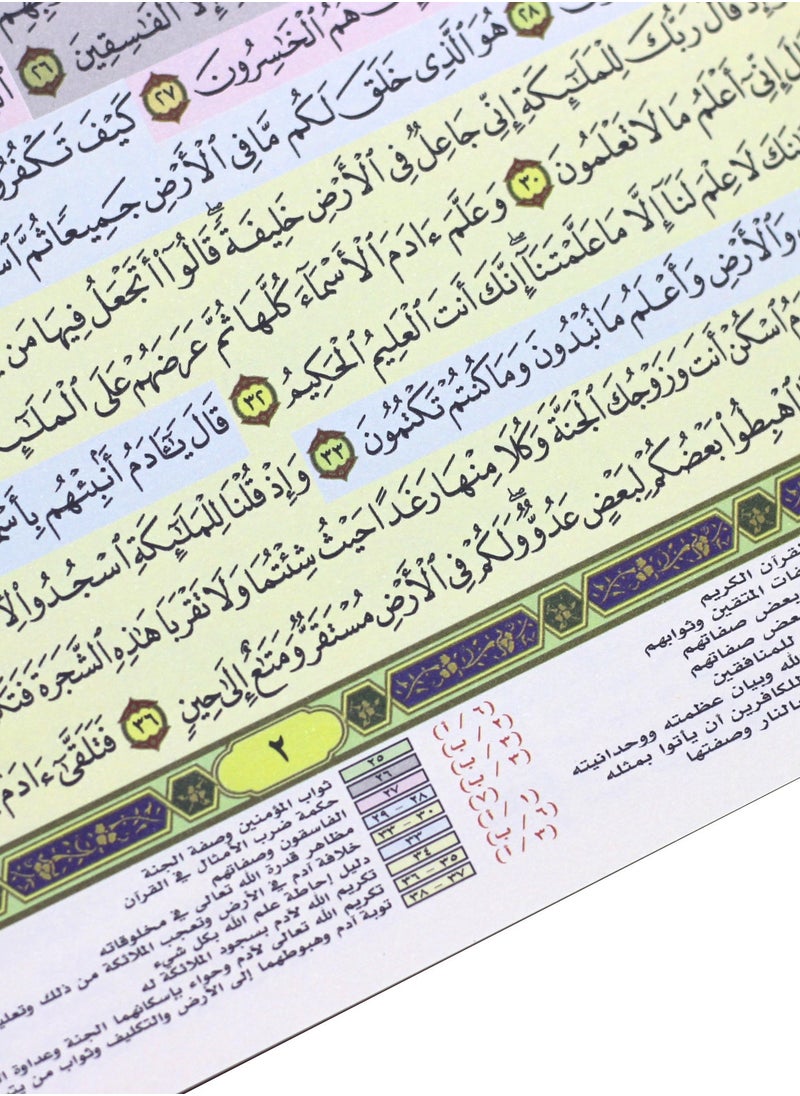 إِلَّا الْفَاسِقِينَ ٢٦
هُمُ الْخَاسِرُونَ ٢٧ كَيْفَ تَكْفُرُو
٢٨ هُوَ الَّذِي خَلَقَ لَكُم مَّا فِي الْأَرْضِ جَمِيعًا ثُمَّ
وَإِذْ قَالَ رَبُّكَ لِلْمَلَٰٓئِكَةِ إِنِّي جَاعِلٌ فِي الْأَرْضِ خَلِيفَةً ۖ قَالُوٓا۟ أَتَجْعَلُ فِيهَا مَن
قَالَ إِنِّيٓ أَعْلَمُ مَا لَا تَعْلَمُونَ ٣٠ وَعَلَّمَ ءَادَمَ الْأَسْمَآءَ كُلَّهَا ثُمَّ عَرَضَهُمْ عَلَى الْمَلَٰٓئِ
لَا عِلْمَ لَنَآ إِلَّا مَا عَلَّمْتَنَآ ۖ إِنَّكَ أَنتَ الْعَلِيمُ الْحَكِيمُ ٣٢ قَالَ يَٰٓـَٔادَمُ أَنۢبِئْهُم بِأَسْمَ
وَالْأَرْضِ وَأَعْلَمُ مَا تُبْدُونَ وَمَا كُنتُمْ تَكْتُمُونَ ٣٣ وَإِذْ قُلْنَا لِلْمَلَٰٓئِكَةِ اسْجُدُوا۟ لِـَٔا
اسْكُنْ أَنتَ وَزَوْجُكَ الْجَنَّةَ وَكُلَا مِنْهَا رَغَدًا حَيْثُ شِئْتُمَا وَلَا تَقْرَبَا هَٰذِهِ الشَّجَرَةَ فَتَكُ
اهْبِطُوا۟ بَعْضُكُمْ لِبَعْضٍ عَدُوٌّ ۖ وَلَكُمْ فِي الْأَرْضِ مُسْتَقَرٌّ وَمَتَٰعٌ إِلَىٰ حِينٍ ٣٦ فَتَلَقَّىٰٓ ءَادَمُ
٢
القرآن الكريم
المتقين وثوابهم
بعض صفاتهم
بعض صفاتهم
للمنافقين
الله وبيان عظمته ووحدانيته
للكافرين أن يأتوا بمثله
النار وصفتها
٢٥ ثواب المؤمنين وصفة الجنة
٢٦ حكمة ضرب الأمثال في القرآن
٢٧ الفاسقون وصفاتهم
٢٨ - ٢٩ مظاهر قدرة الله تعالى في مخلوقاته
٣٠ - ٣٢ خلافة آدم في الأرض وتعجب الملائكة من ذلك وتعلي
٣٣ دليل إحاطة علم الله بكل شيء
٣٤ تكريم الله لآدم بسجود الملائكة له
٣٥ - ٣٦ تكريم الله تعالى لآدم وحواء بإسكانهما الجنة وعداوة ا
٣٧ - ٣٨ توبة آدم وهبوطهما إلى الأرض والتكليف وثواب من يت